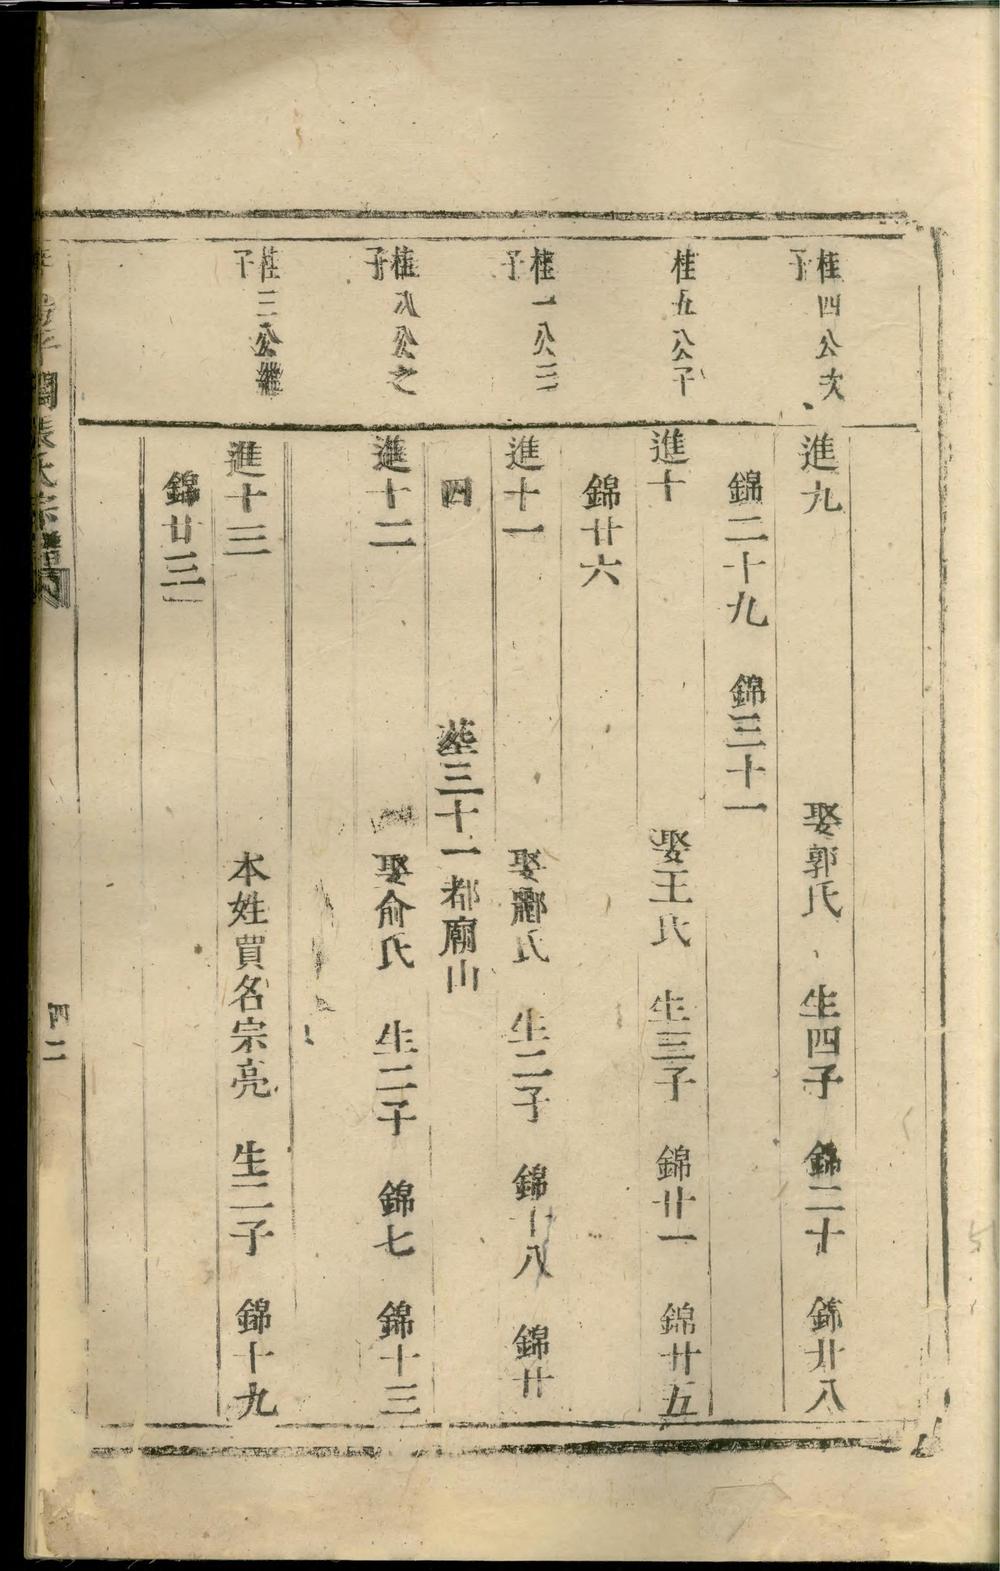 桂四公次
子
進九　娶郭氏　生四子　錦二十　錦廿八
錦二十九　錦三十一
桂五公子
進十　娶王氏　生三子　錦廿一　錦廿五
錦廿六
桂一公三
子
進十一　娶酈氏　生二子　錦十八　錦廿
四　塟三十一都廟山
桂八公之
子
進十二　娶俞氏　生二子　錦七　錦十三
桂三公繼
子
進十三　本姓買名宗亮　生二子　錦十九
錦廿三
張氏宗譜
四二